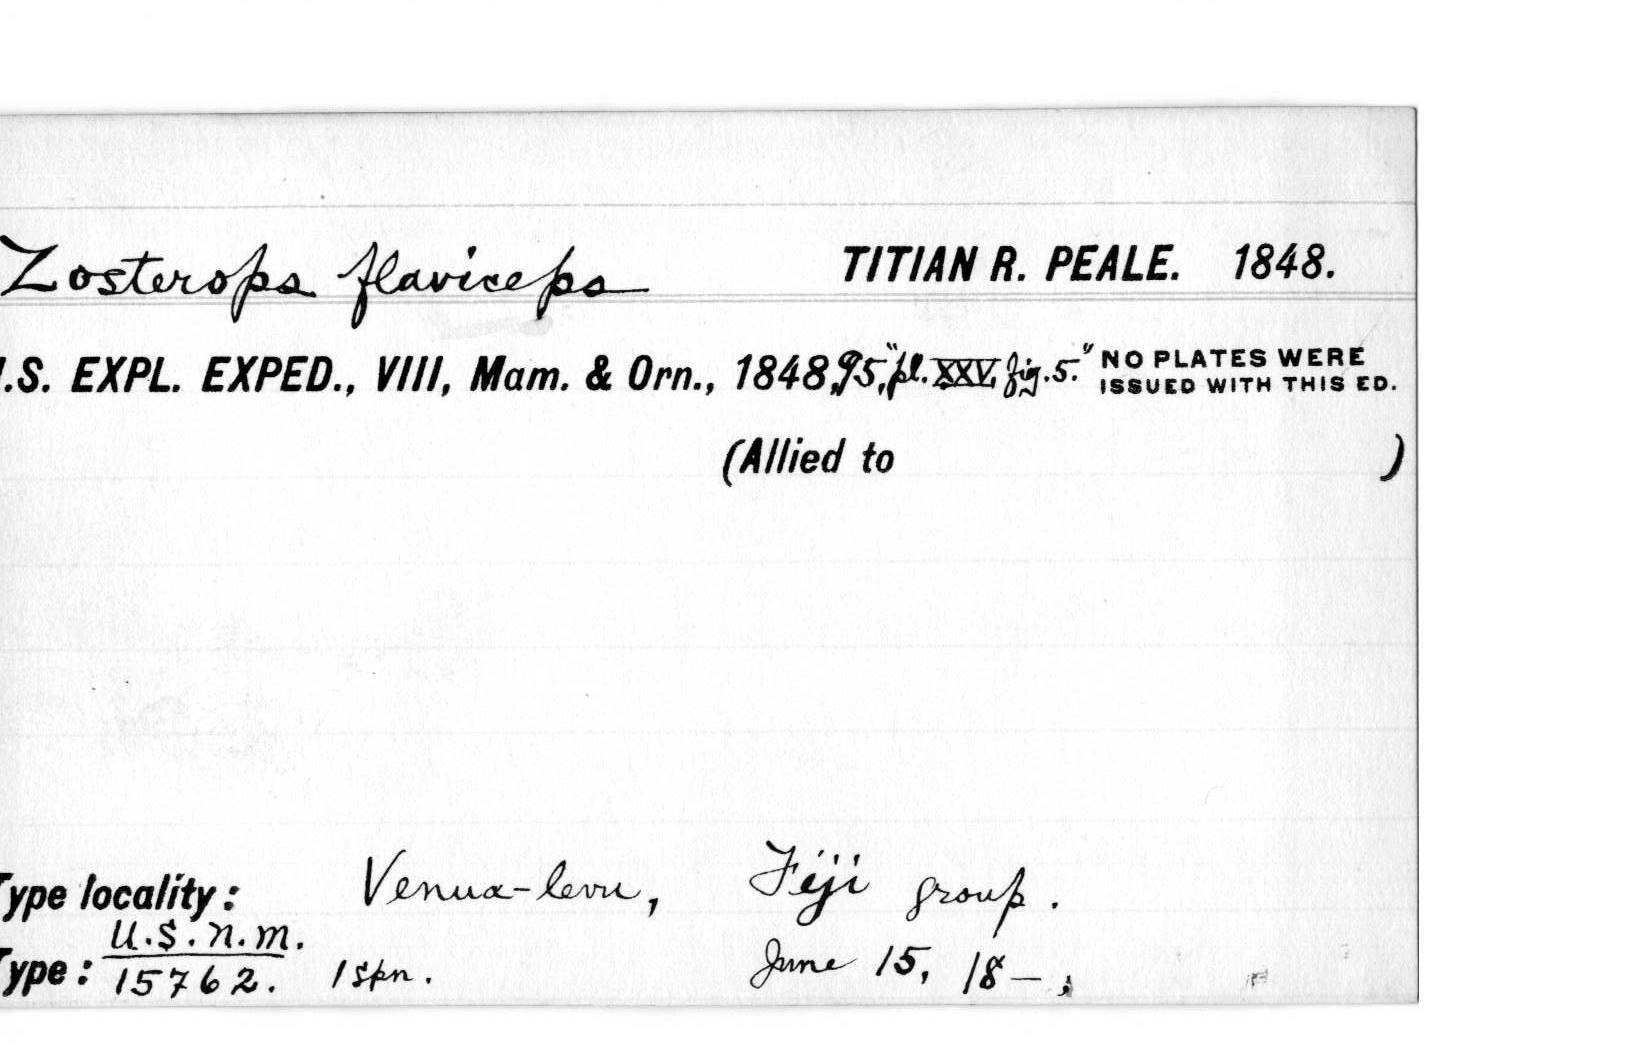 Zosterops flaviceps TITIAN R. PEALE. 1848.
.S. EXPL. EXPED., VIII, Mam. & Orn., 1848, 95, "pl. XXV, fig. 5." NO PLATES WERE
ISSUED WITH THIS ED.
(Allied to )
Type locality: Venua-levu, Fiji group.
U.S.N.M.
Type: 15762. 1 spn. June 15, 18—;